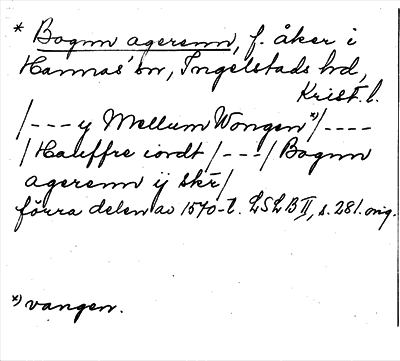 * Bognn agerenn, f. åker i
Hannas' sn, Ingelstads hd,
Krist. l.
/--- y Mellum Wongen *)/----
/ Hauffre iordt /---/ Bognn
agerenn ij skr/
förra delen av 1570-t. LSLB II, s. 281. orig.
*) vangen.